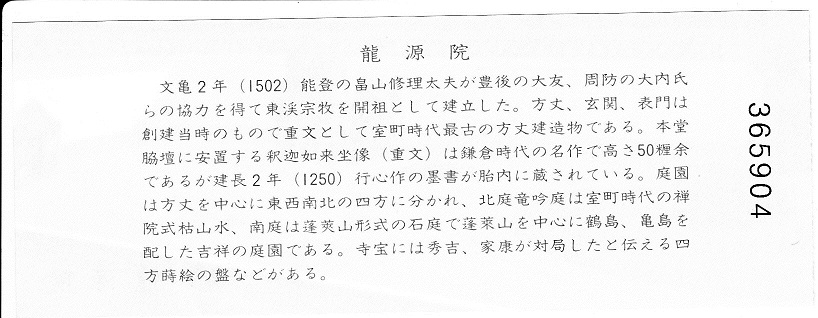 龍源院
文亀2年（1502）能登の畠山修理太夫が豊後の大友、周防の大内氏
らの協力を得て東渓宗牧を開祖として建立した。方丈、玄関、表門は
創建当時のもので重文として室町時代最古の方丈建造物である。本堂
脇壇に安置する釈迦如来坐像（重文）は鎌倉時代の名作で高さ50糎余
であるが建長2年（1250）行心作の墨書が胎内に蔵されている。庭園
は方丈を中心に東西南北の四方に分かれ、北庭竜吟庭は室町時代の禅
院式枯山水、南庭は蓬莱山形式の石庭で蓬萊山を中心に鶴島、亀島を
配した吉祥の庭園である。寺宝には秀吉、家康が対局したと伝える四
方蒔絵の盤などがある。
365904